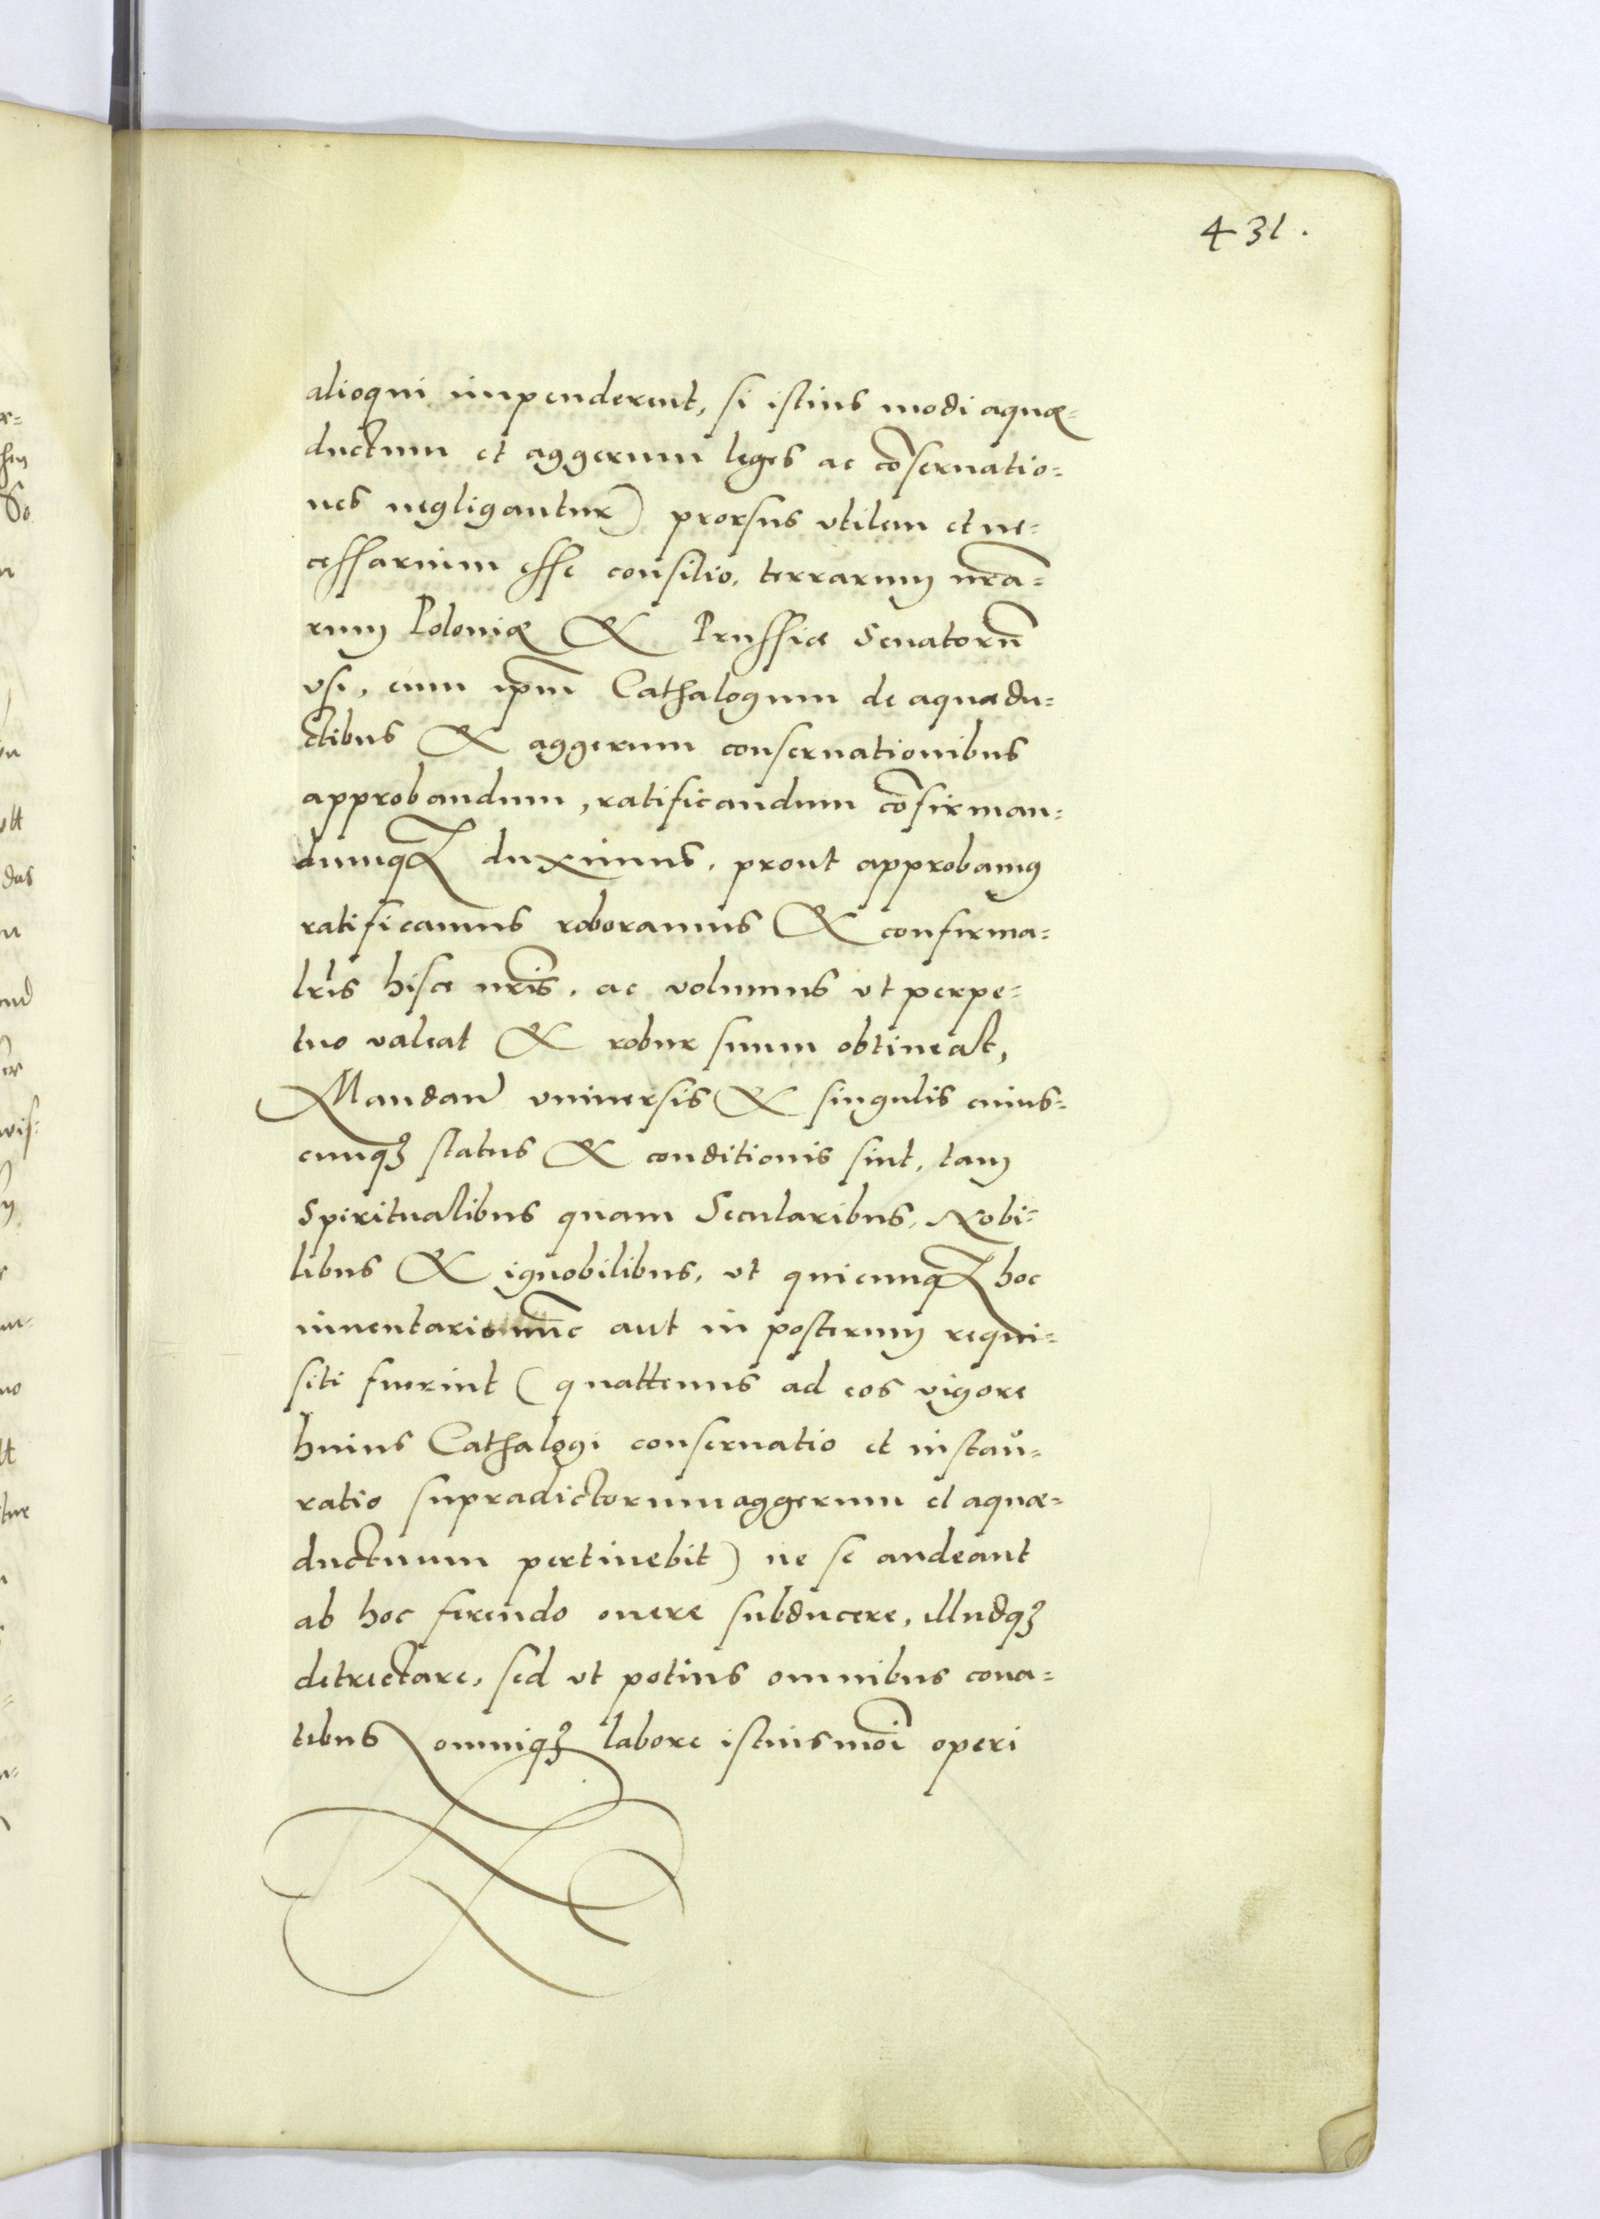 431.
alioqui impenderent, si istius modi aquæ-
ductum et aggerum leges ac cōseruatio-
nes negligantur) prorsus vtilem et ne-
cessarium esse consilio, terrarum nr̄a-
rum Poloniæ & Prussiæ Senatorū
vsi, eum ip̄m Cathalogum de aquædu-
ctibus & aggerum conseruationibus
approbandum, ratificandum cōfirman-
dumq́ duximus, prout approbamus
ratificamus roboramus & confirma-
lr̄is hisce nr̄is, ac volumus vt perpe-
tuo valeat & robur suum obtineat,
Mandan̄ vniuersis & singulis cuius-
cunqꝫ status & conditionis sint, tam
Spiritualibus quam Secularibus, Nobi-
libus & ignobilibus, vt quicunqꝫ hoc
inuentario nūc aut in posterum requi-
siti fuerint (quattenus ad eos vigore
huius Cathalogi conseruatio et instau-
ratio supradictorum aggerum et aquæ-
ductuum pertinebit) ne se audeant
ab hoc ferendo onere subducere, illudqꝫ
detrectare, sed vt potius omnibus cona-
tibus omniqꝫ labore istiusmōi operi